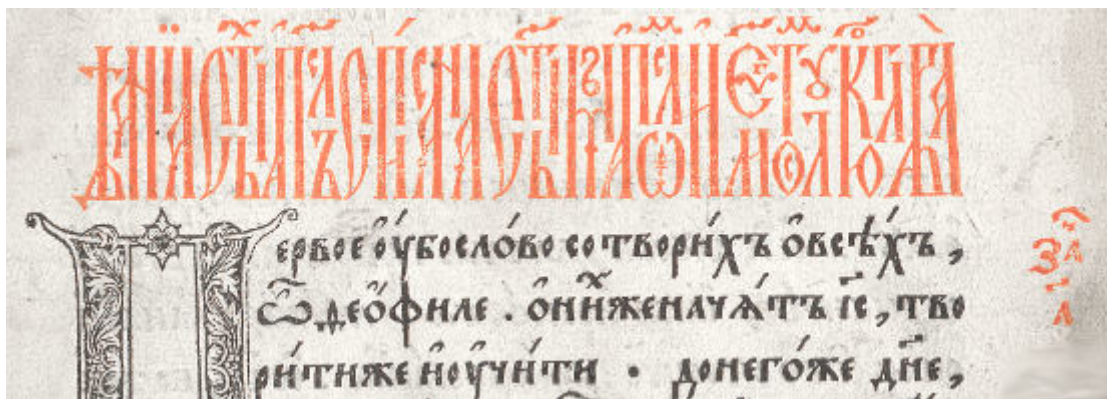 Дѣѧнїѧ ст҃ыхъ а҆пⷭ҇лъ списана ст҃ымъ а҆пⷭ҇лѡмъ и҆ є҆ѵⷢ҇листомъ лꙋкою
Первое оу҆бо сло́во сотвори́хъ ѻ҆ всѣ́хъ ,
Ѽ деѻ҆филе . ѻ҆ ни́хже начѧ́тъ і҆с҃ , тво
ри́ти же и҆ оу҆чи́ти · до него́же дн҃е ,
за
а